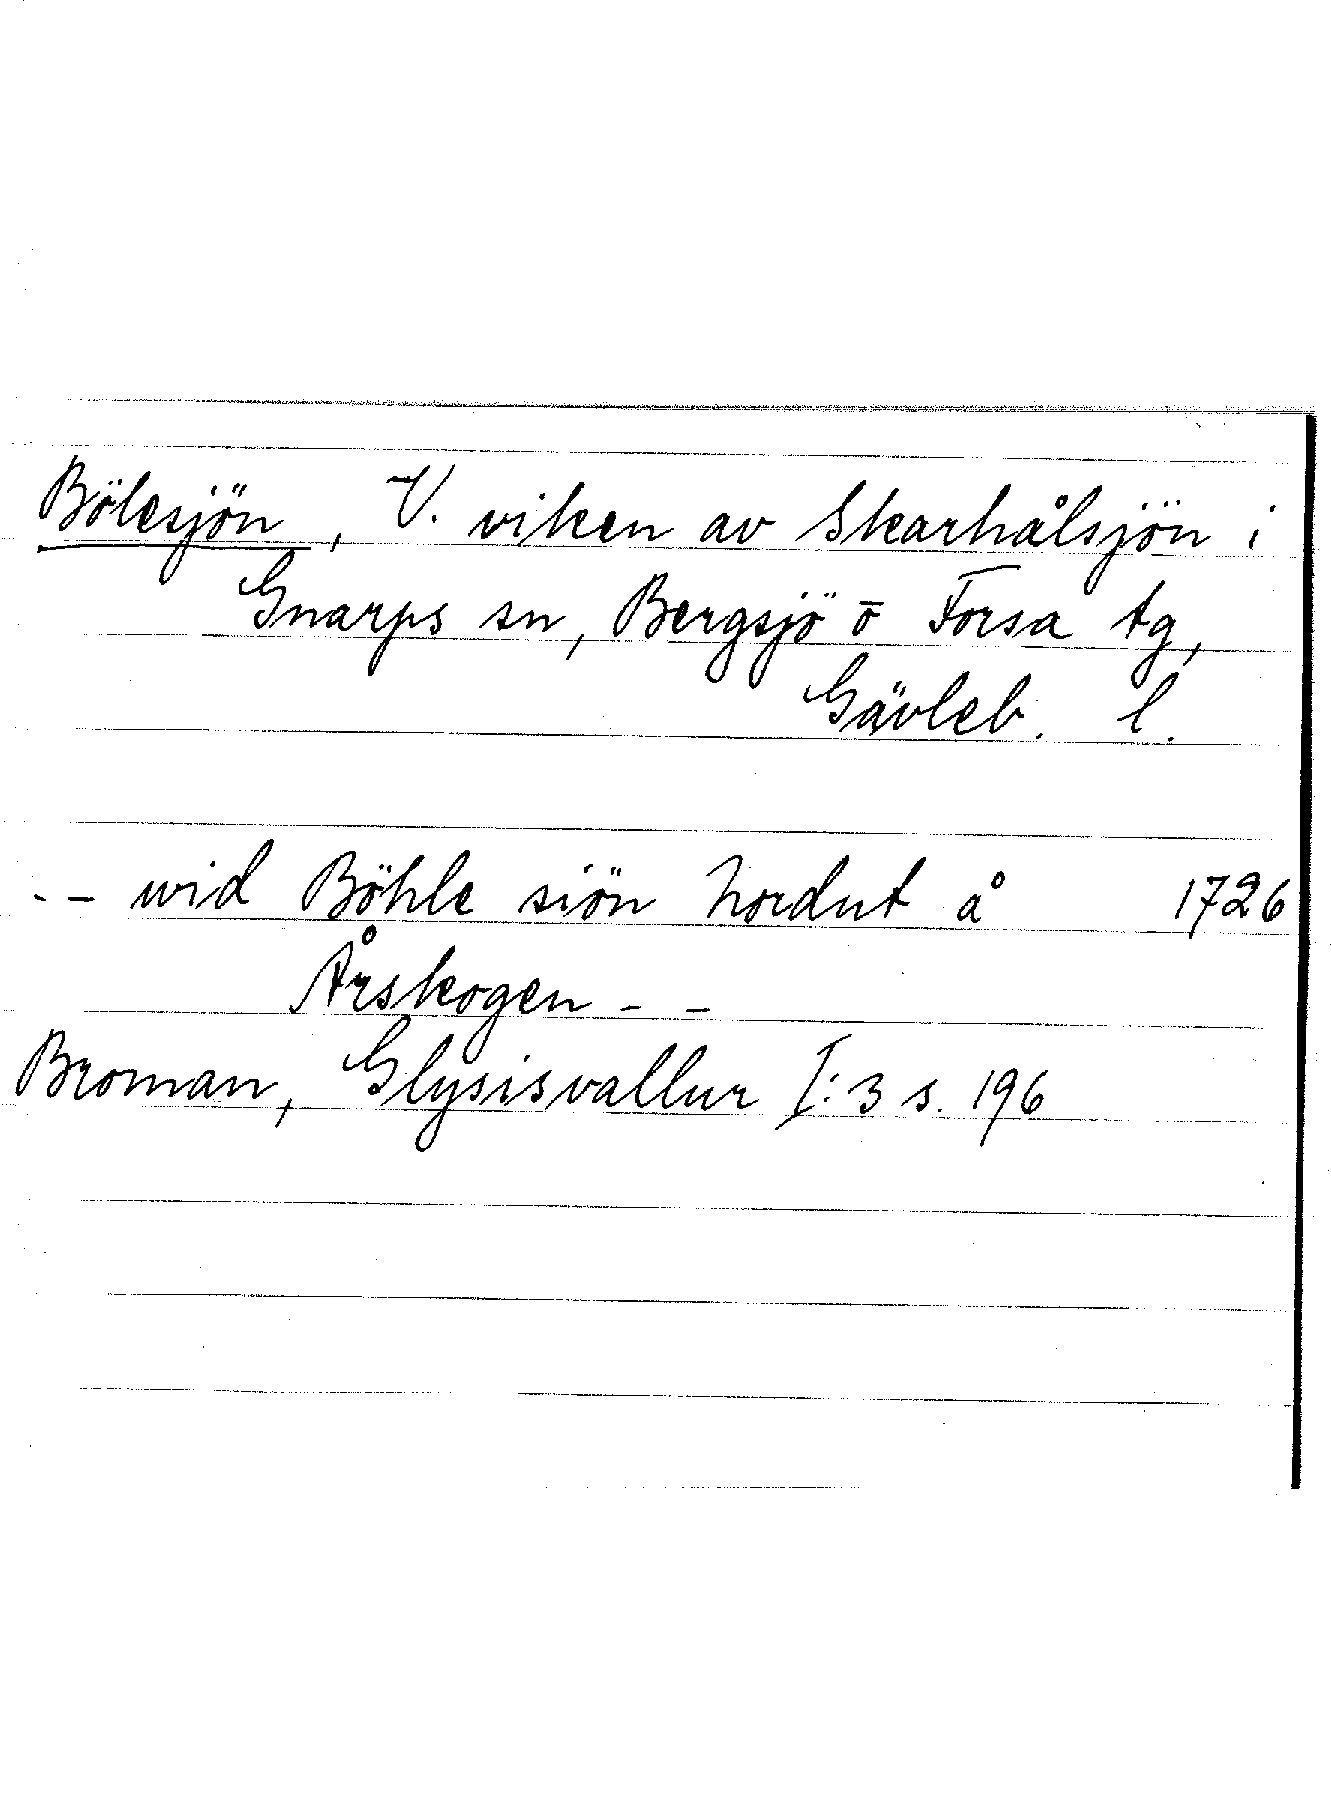 Bölesjön, V. viken av Skarhålsjön i
Gnarps sn, Bergsjö ō Forsa tg,
Gävleb. l.
-- wid Böhle siön Nordut å 1726
Årskogen - -
Broman, Glysisvallur I:3 s. 196